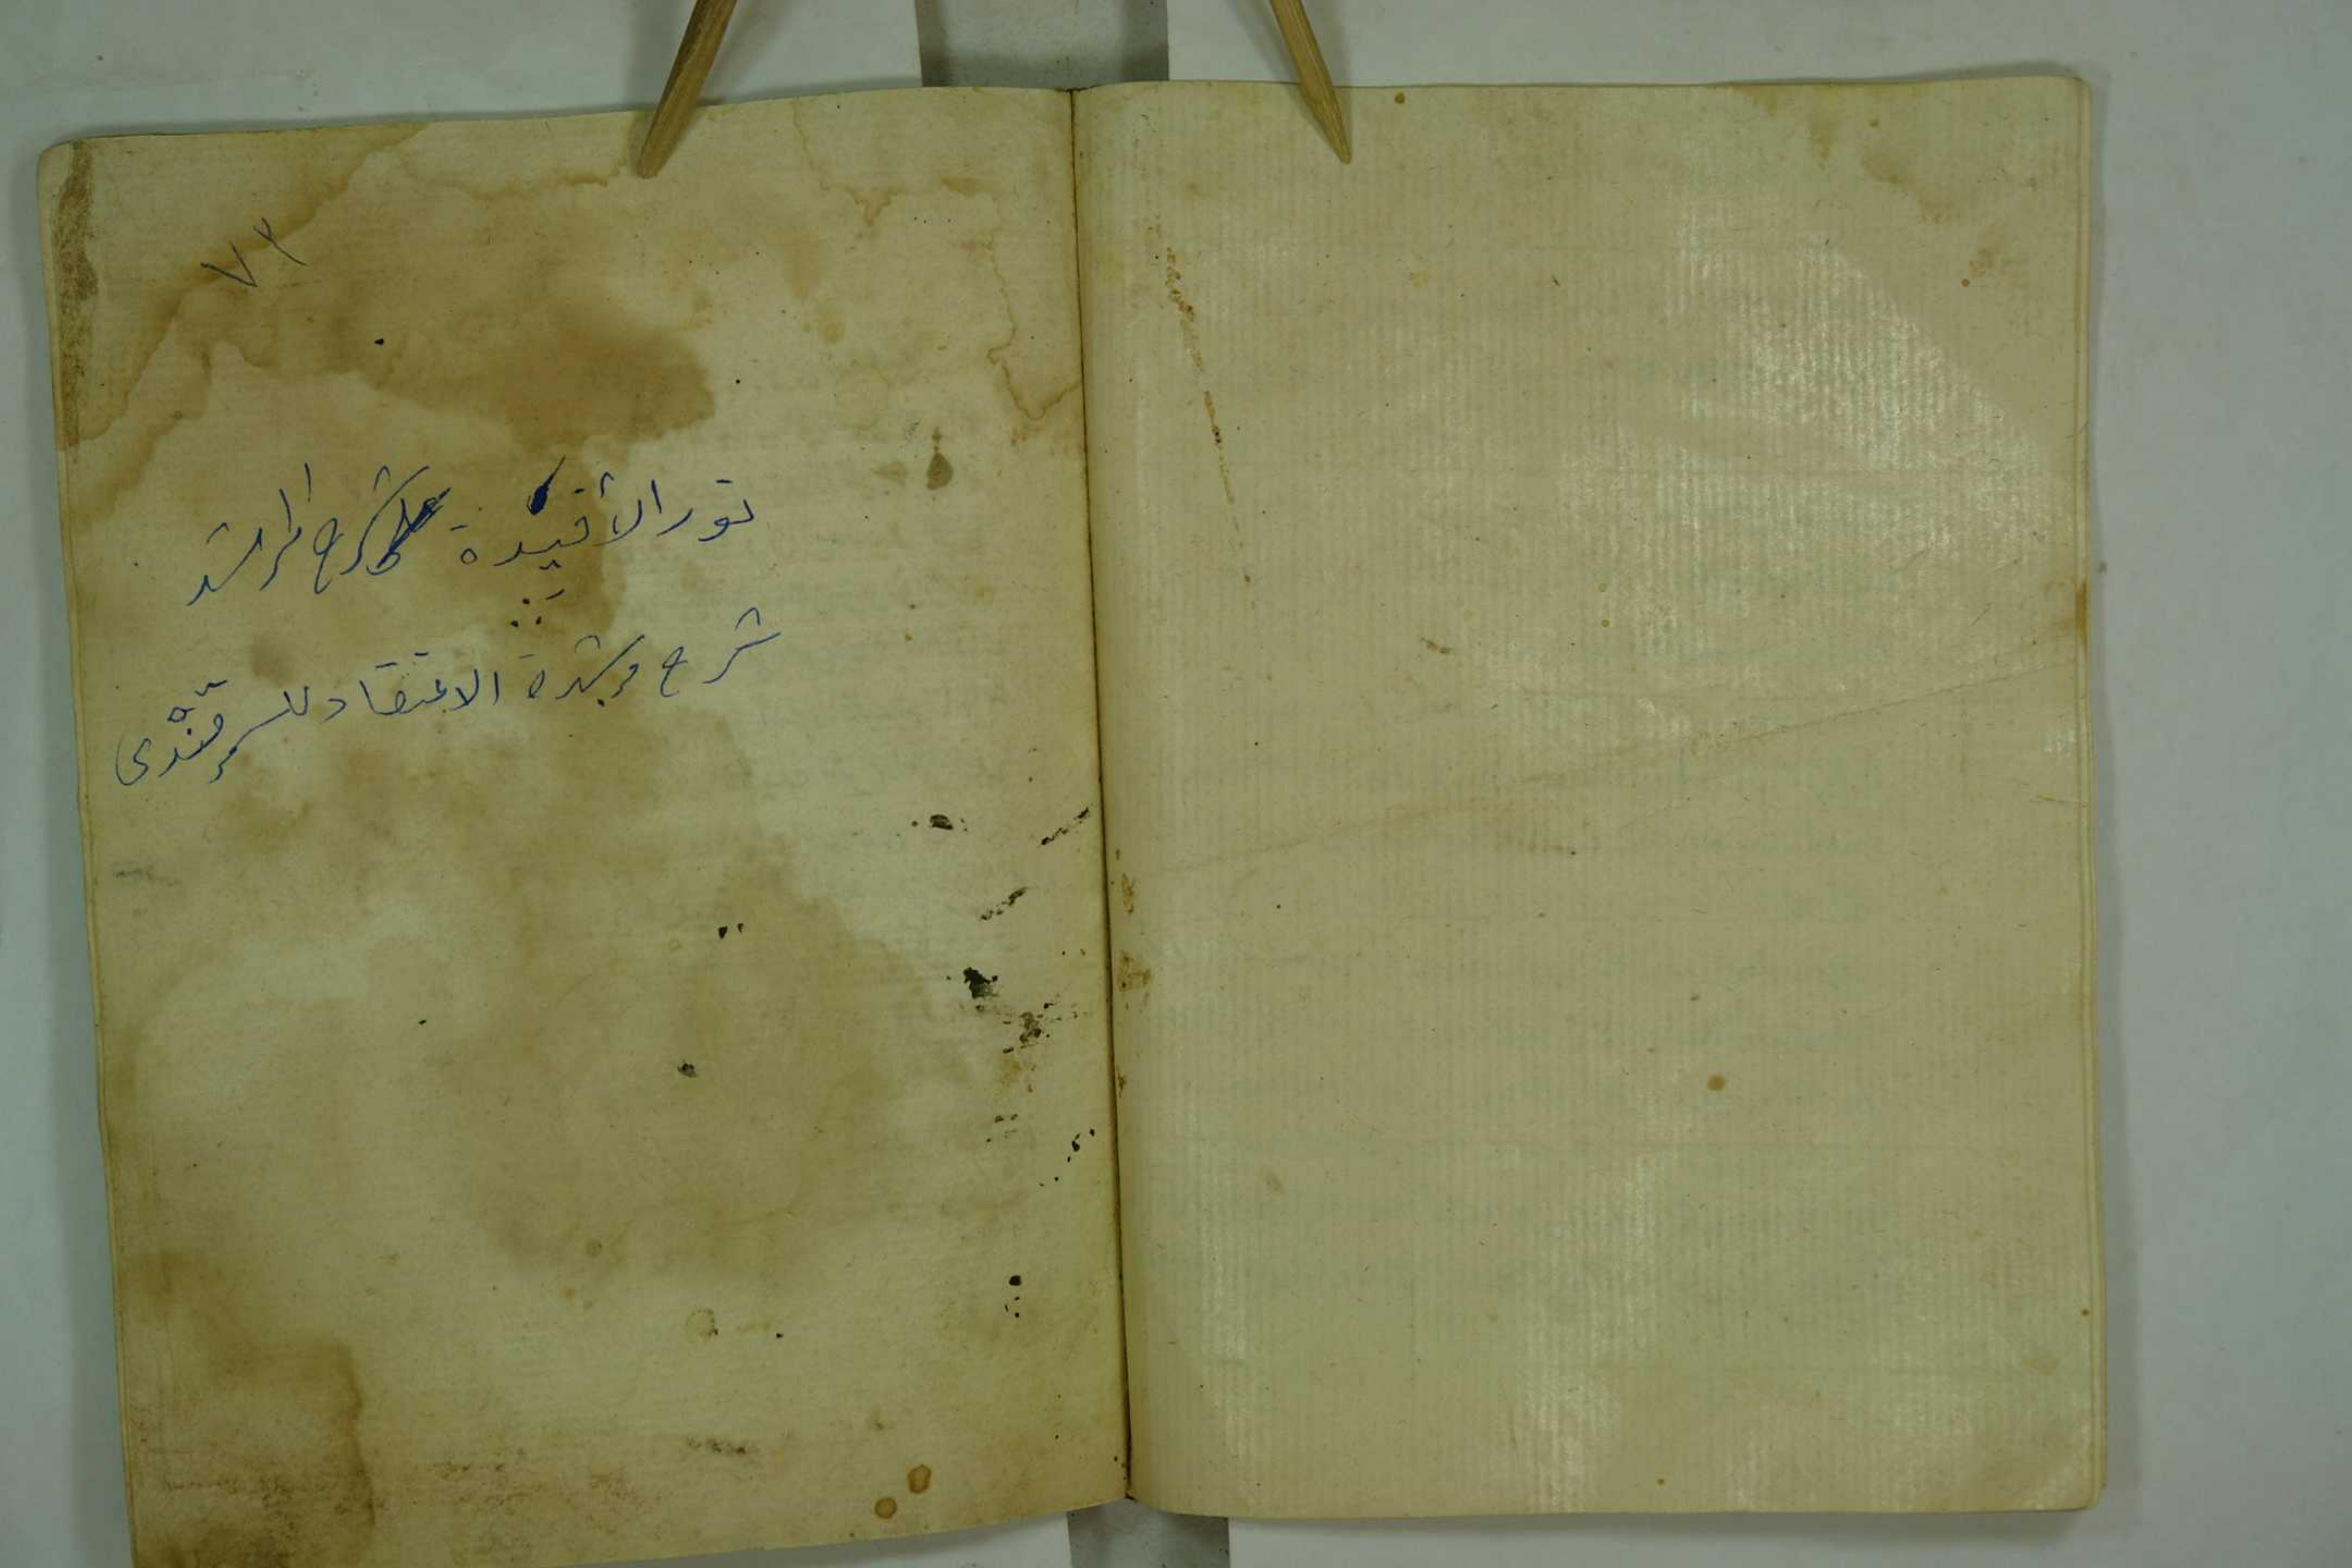 ٧٢
نور الأفئدة شرح المرشد
شرح مرشدة الاعتقاد للسمرقندى